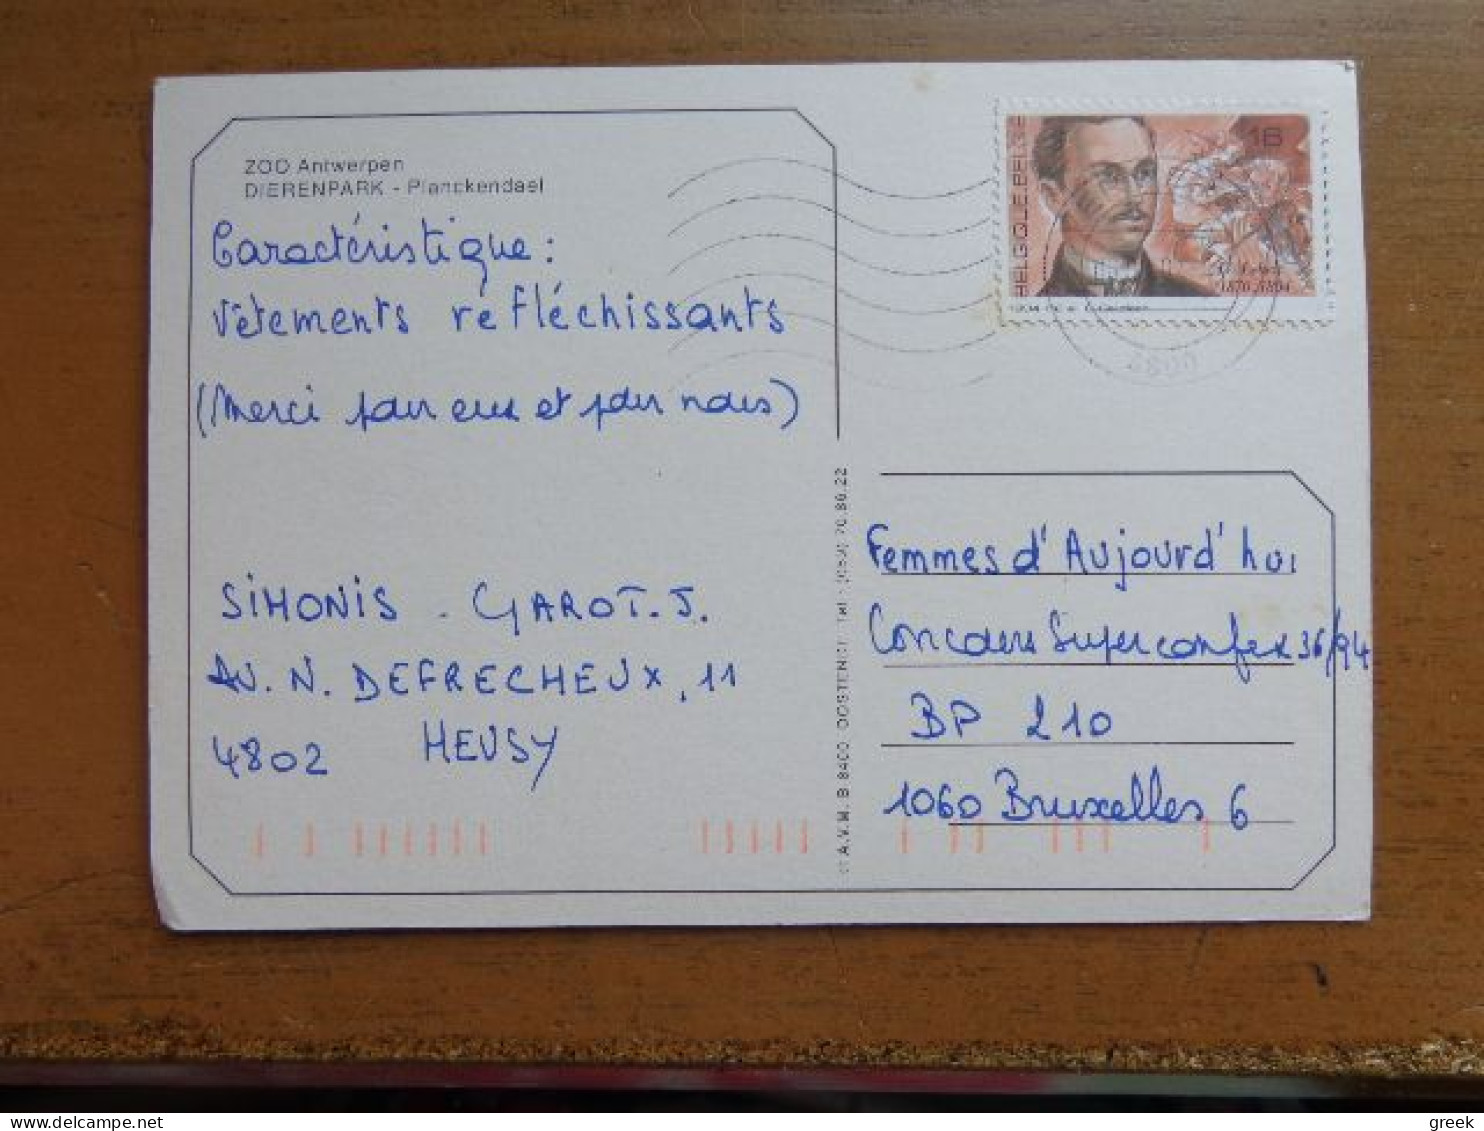 ZOO Antwerpen
DIERENPARK - Planckendael
Caractéristique :
Vêtements réfléchissants
(Merci pour eux et pour nous)
SIMONIS - GAROT. J.
AV. N. DEFRECHEUX, 11
4802 HEUSY
BELGIQUE-BELGIE
16
4800
A.V.M. B 8400 OOSTENDE
Femmes d'Aujourd'hui
Concours Superconfex 36/94
BP 210
1060 Bruxelles 6
greek
delcampe.net